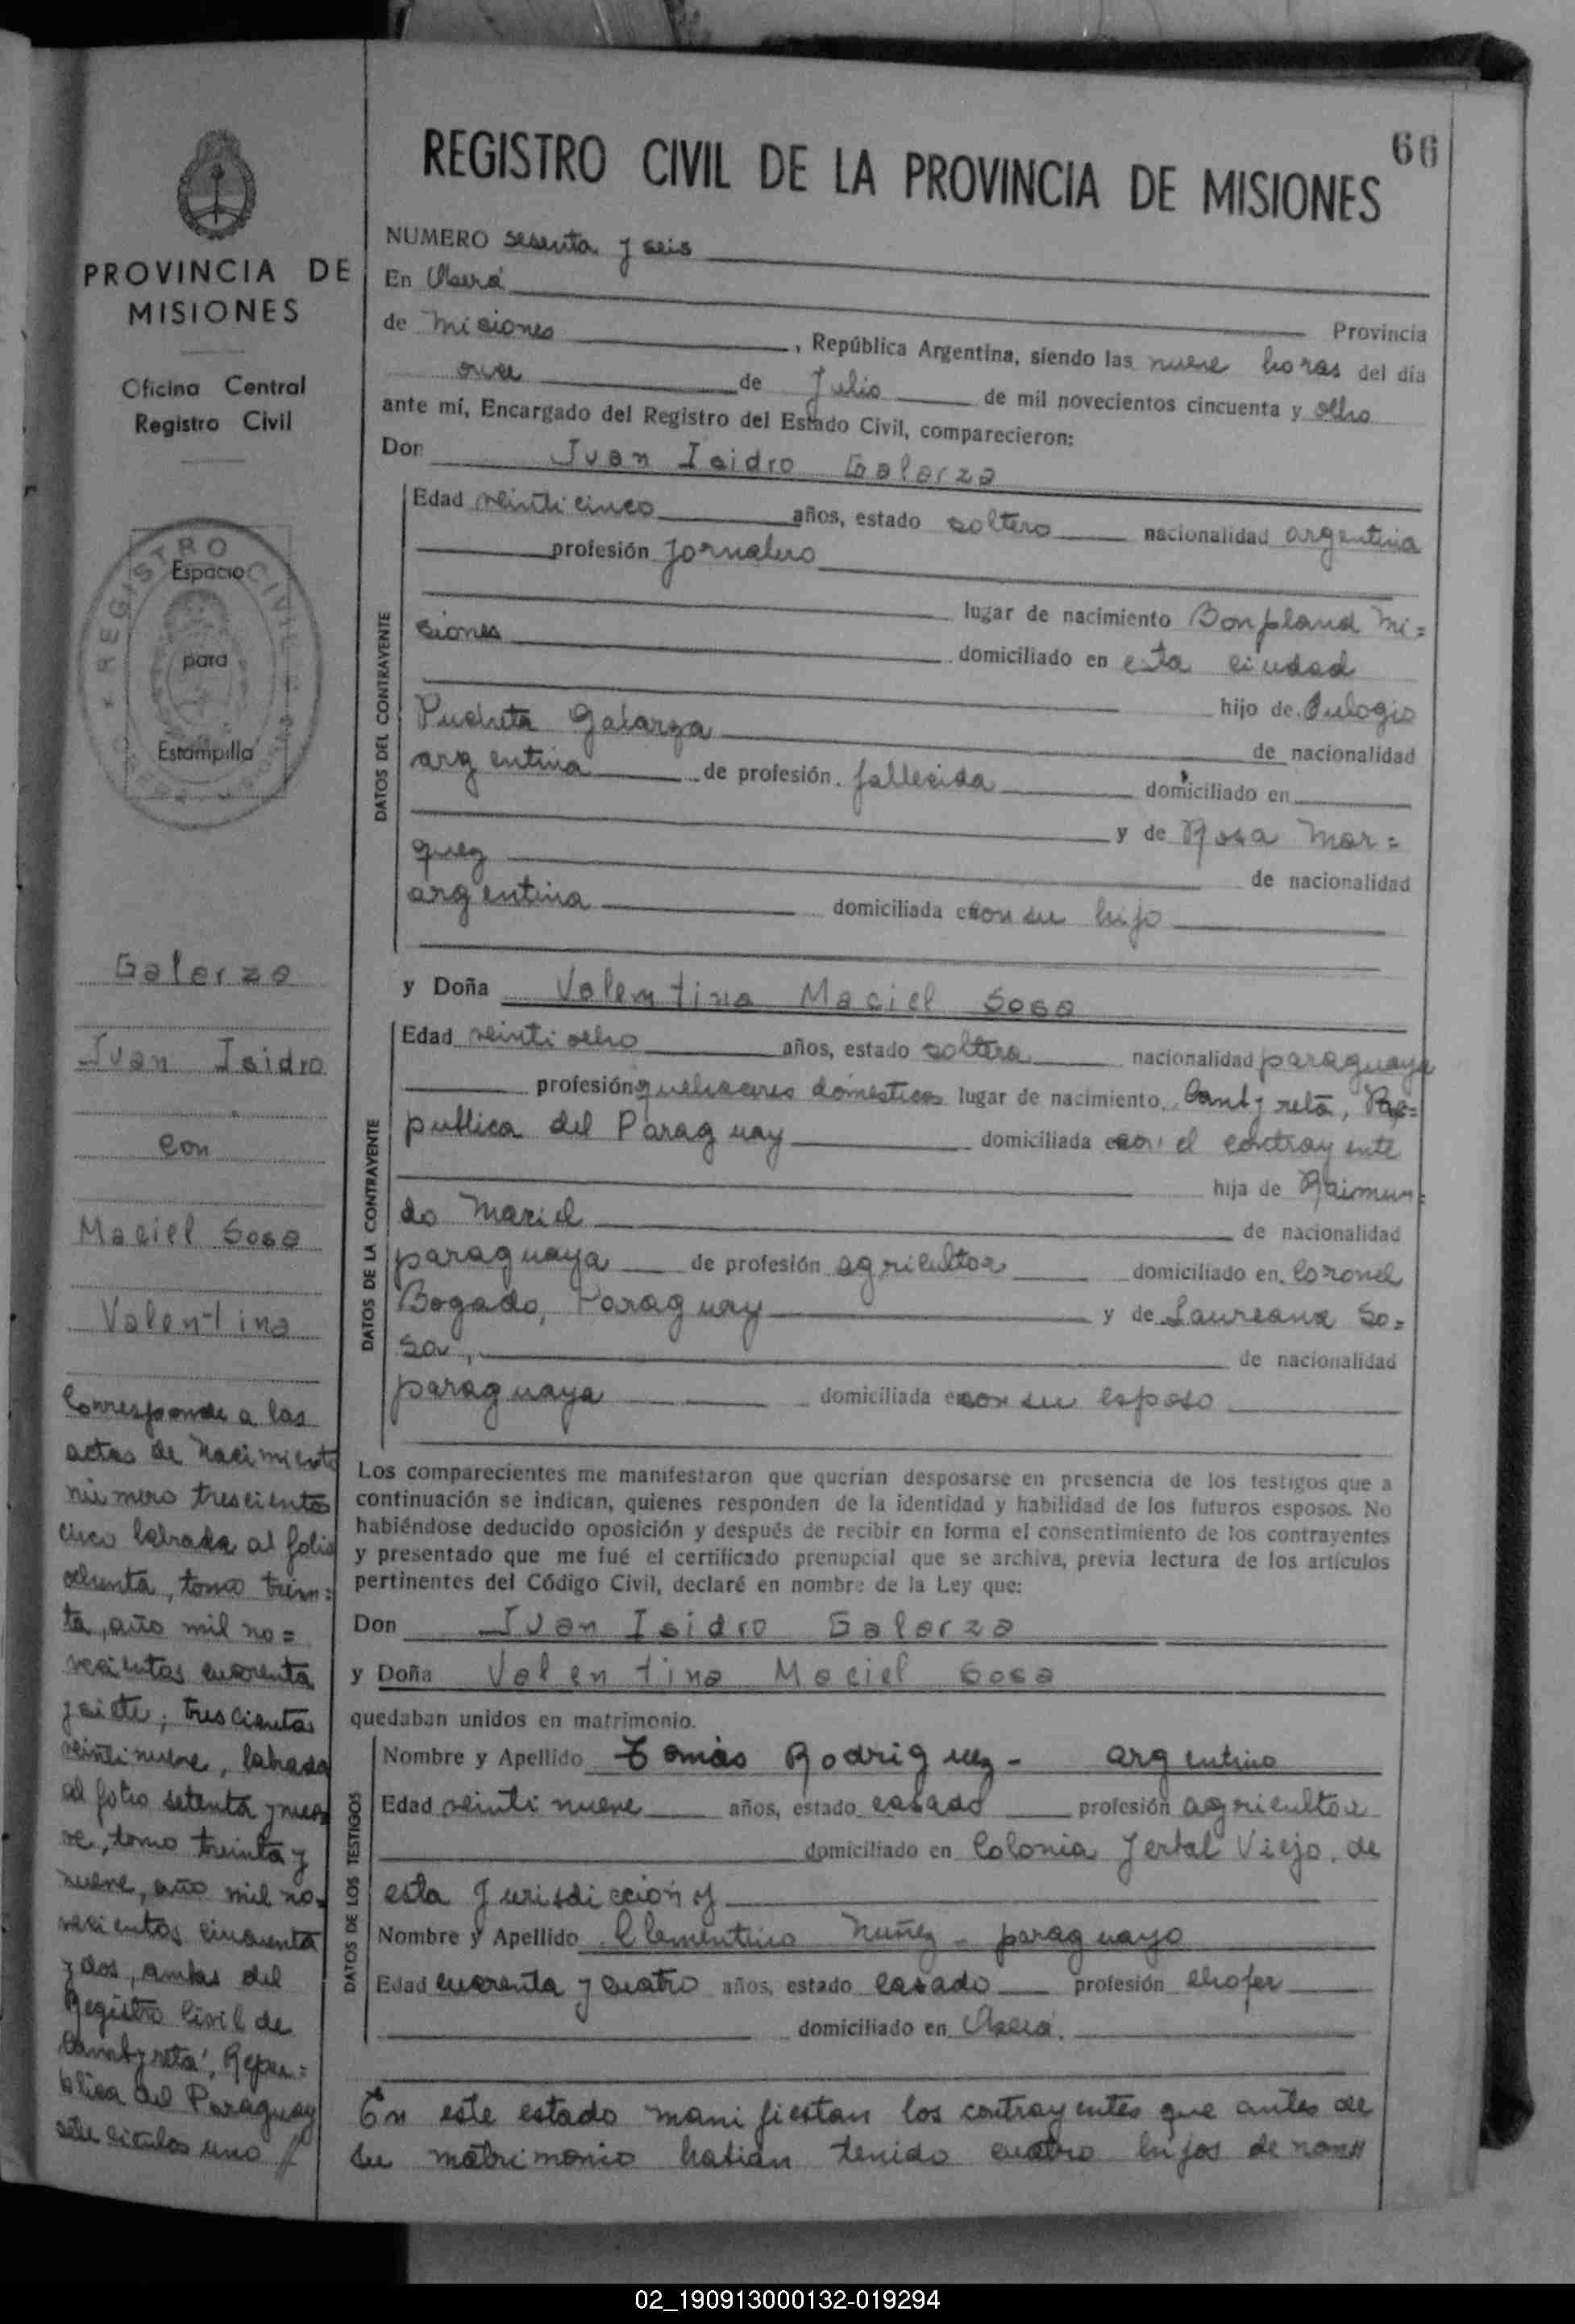 66
REGISTRO CIVIL DE LA PROVINCIA DE MISIONES
PROVINCIA DE
MISIONES
Oficina Central
Registro Civil
REGISTRO CIVIL
Espacio
para
Estampilla
Galarza
Juan Isidro
con
Maciel Sosa
Valentina
Corresponde a las
actas de nacimiento
número trescientos
cinco labrada al folio
ochenta, tomo trein=
ta, año mil no=
vecientos cuarenta
y siete; trescientos
veintinueve, labrada
al folio setenta y nue
ve, tomo treinta y
nueve, año mil no-
vecientos cincuenta
y dos, ambas del
Registro Civil de
Cambyretá, Repu=
blica del Paraguay
uno
NUMERO sesenta y seis
En Oberá
Provincia
de Misiones, República Argentina, siendo las nueve horas del día
once de Julio de mil novecientos cincuenta y ocho
ante mí, Encargado del Registro del Estado Civil, comparecieron:
Don Juan Isidro Galarza
DATOS DEL CONTRAYENTE
Edad veinticinco años, estado soltero nacionalidad argentina
profesión Jornalero
lugar de nacimiento Bonpland Mi=
siones domiciliado en esta ciudad
hijo de Eulogio
Pucheta Galarza de nacionalidad
argentina de profesión fallecida domiciliado en
y de Rosa Mar=
quez de nacionalidad
argentina domiciliada con su hijo
y Doña Valentina Maciel Sosa
DATOS DE LA CONTRAYENTE
Edad veintiocho años, estado soltera nacionalidad paraguaya
profesión quehaceres domesticos lugar de nacimiento Cambyretá, Re=
publica del Paraguay domiciliada con el contrayente
hija de Raimun=
do Maciel de nacionalidad
paraguaya de profesión agricultor domiciliado en Coronel
Bogado, Paraguay y de Laureana So=
sa, de nacionalidad
paraguaya domiciliada con su esposo
Los comparecientes me manifestaron que querían desposarse en presencia de los testigos que a
continuación se indican, quienes responden de la identidad y habilidad de los futuros esposos. No
habiéndose deducido oposición y después de recibir en forma el consentimiento de los contrayentes
y presentado que me fué el certificado prenupcial que se archiva, previa lectura de los artículos
pertinentes del Código Civil, declaré en nombre de la Ley que:
Don Juan Isidro Galarza
y Doña Valentina Maciel Sosa
quedaban unidos en matrimonio.
DATOS DE LOS TESTIGOS
Nombre y Apellido Tomás Rodriguez - argentino
Edad veintinueve años, estado casado profesión agricultor
domiciliado en Colonia Yerbal Viejo, de
esta Jurisdicción y
Nombre y Apellido Clementino Nuñez - paraguayo
Edad cuarenta y cuatro años, estado casado profesión chofer
domiciliado en Oberá.
En este estado manifiestan los contrayentes que antes de
su matrimonio habian tenido cuatro hijos de nom
02_190913000132-019294